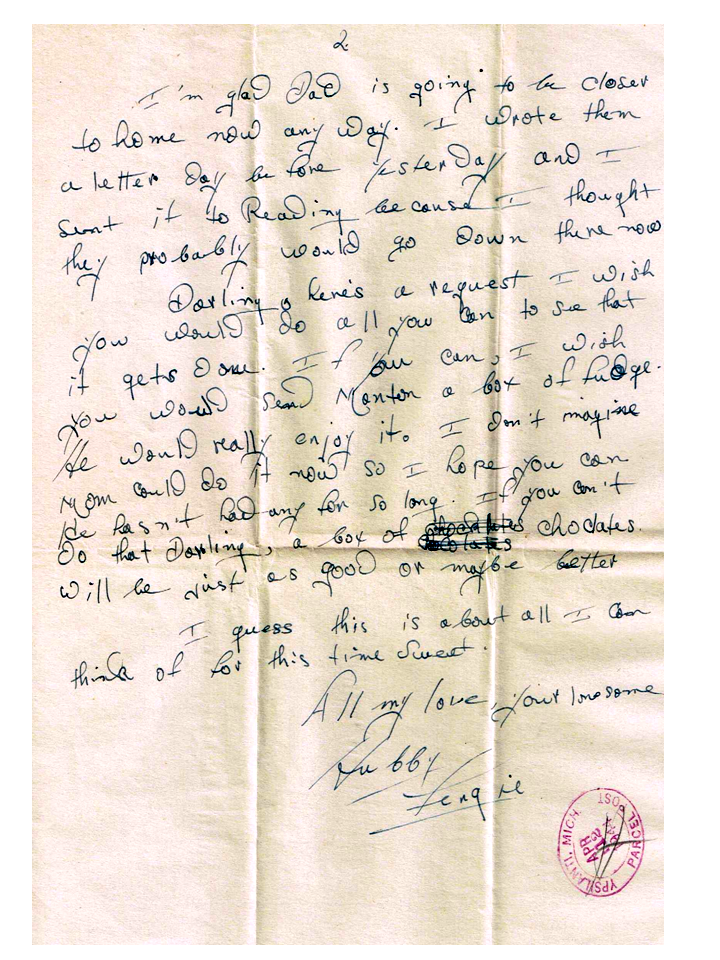 2.
I'm glad Dad is going to be closer
to home now any way. I wrote them
a letter day before yesterday and I
sent it to Reading because I thought
they probably would go down there now
Darling, here's a request I wish
you would do all you can to see that
it gets done. If you can, I wish
you would send Manton a box of fudge.
He would really enjoy it. I don't imagine
Mom could do it now so I hope you can
He hasn't had any for so long. If you can't
do that Darling, a box of choclates.
will be just as good or maybe better
I guess this is about all I can
think of for this time Sweet.
All my love, your lonesome
Hubby
YPSILANTI, MICH. PARCEL POST
APR